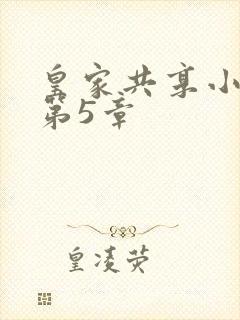 皇家共享小
第5章
皇凌荧